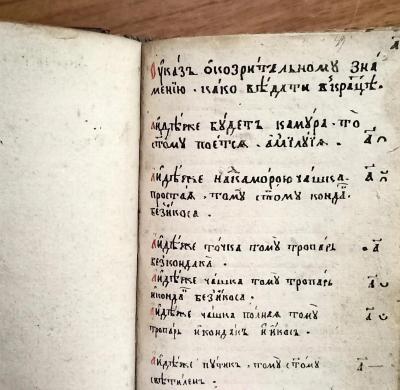 Оуказъ ѻ̂созрительному зна
менїю · како вѣдати вкрацѣ ·
Аидѣже будетъ камура · то
стому поется · алилуїя ·
Аидѣже накаморою чашка
простая · тому стому конда
безикоса ·
Аидѣже точка тому тропарь
безкондака ·
Аидѣже чашка тому тропарь
иконда безикоса ·
Аидѣже чашка полная тому
тропарь икондак иикос ·
Аидѣже путик · тому стому
свѣтилен ·